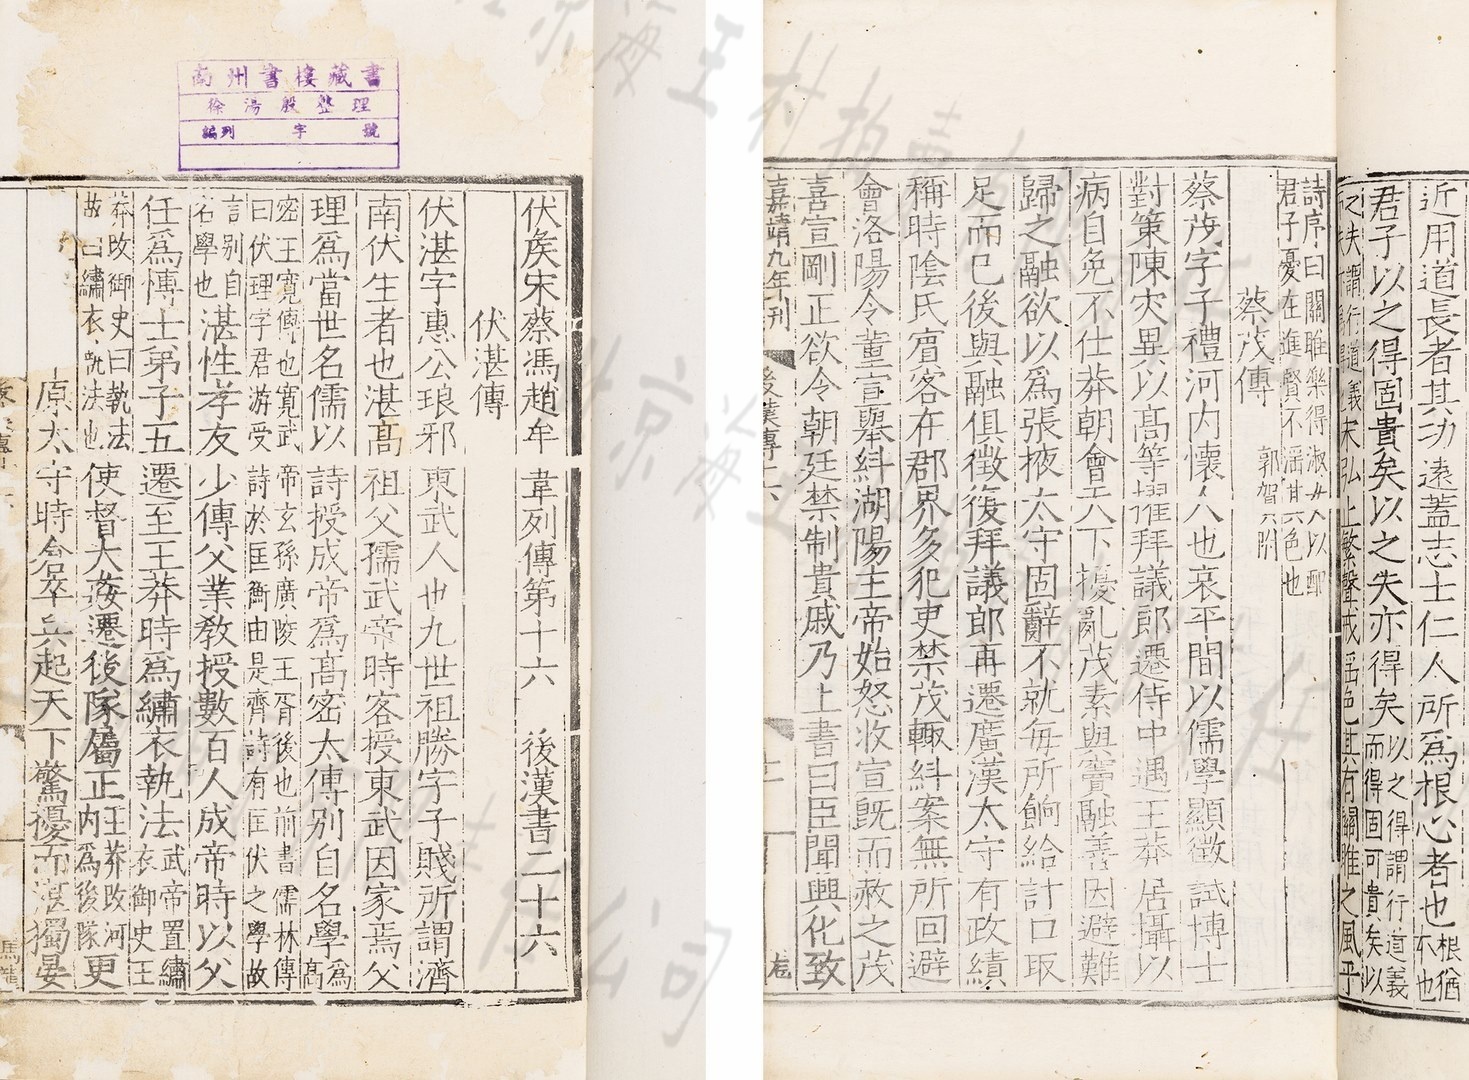 南州書樓藏書
徐湯殷整理
編列 字 號
伏侯宋蔡馮趙牟 韋列傳第十六 後漢書二十六
伏湛傳
伏湛字惠公琅邪東武人也九世祖勝字子賤所謂濟
南伏生者也湛高祖父孺武帝時客授東武因家焉父
理爲當世名儒以詩授成帝爲高密太傅別自名學爲高
密王寬傅也寬武帝玄孫廣陵王胥後也前書儒林傳
曰伏理字君游受詩於匡衡由是齊詩有匡伏之學故
言别自名學也湛性孝友少傳父業教授數百人成帝時以父
任爲博士弟子五遷至王莽時爲繡衣執法武帝置繡衣御史王
莽改御史曰執法故曰繡衣執法也使督大姦遷後隊屬正王莽改河内爲後隊更
原太守時倉卒兵起天下驚擾而湛獨晏
近用道長者其功遠蓋志士仁人所爲根心者也根猶不也
君子以之得固貴矣以之失亦得矣以之得謂行道義而得固可貴矣以
之失謂行道義宋弘止繁聲戒淫色其有關雎之風乎
詩序曰關雎樂得淑女以配
君子憂在進賢不淫其色也
蔡茂傳 郭賀附
蔡茂字子禮河内懷人也哀平間以儒學顯徵試博士
對策陳灾異以高等擢拜議郎遷侍中遇王莽居攝以
病自免不仕莽朝會天下擾亂茂素與竇融善因避難
歸之融欲以爲張掖太守固辭不就每所餉給計口取
足而已後與融俱徵復拜議郎再遷廣漢太守有政績
稱時陰氏賓客在郡界多犯吏禁茂輒糾案無所回避
會洛陽令董宣舉糾湖陽主帝始怒收宣既而赦之茂
喜宣剛正欲令朝廷禁制貴戚乃上書曰臣聞興化致
嘉靖九年刊 後漢傳十六
北京海王村拍賣有限責任公司